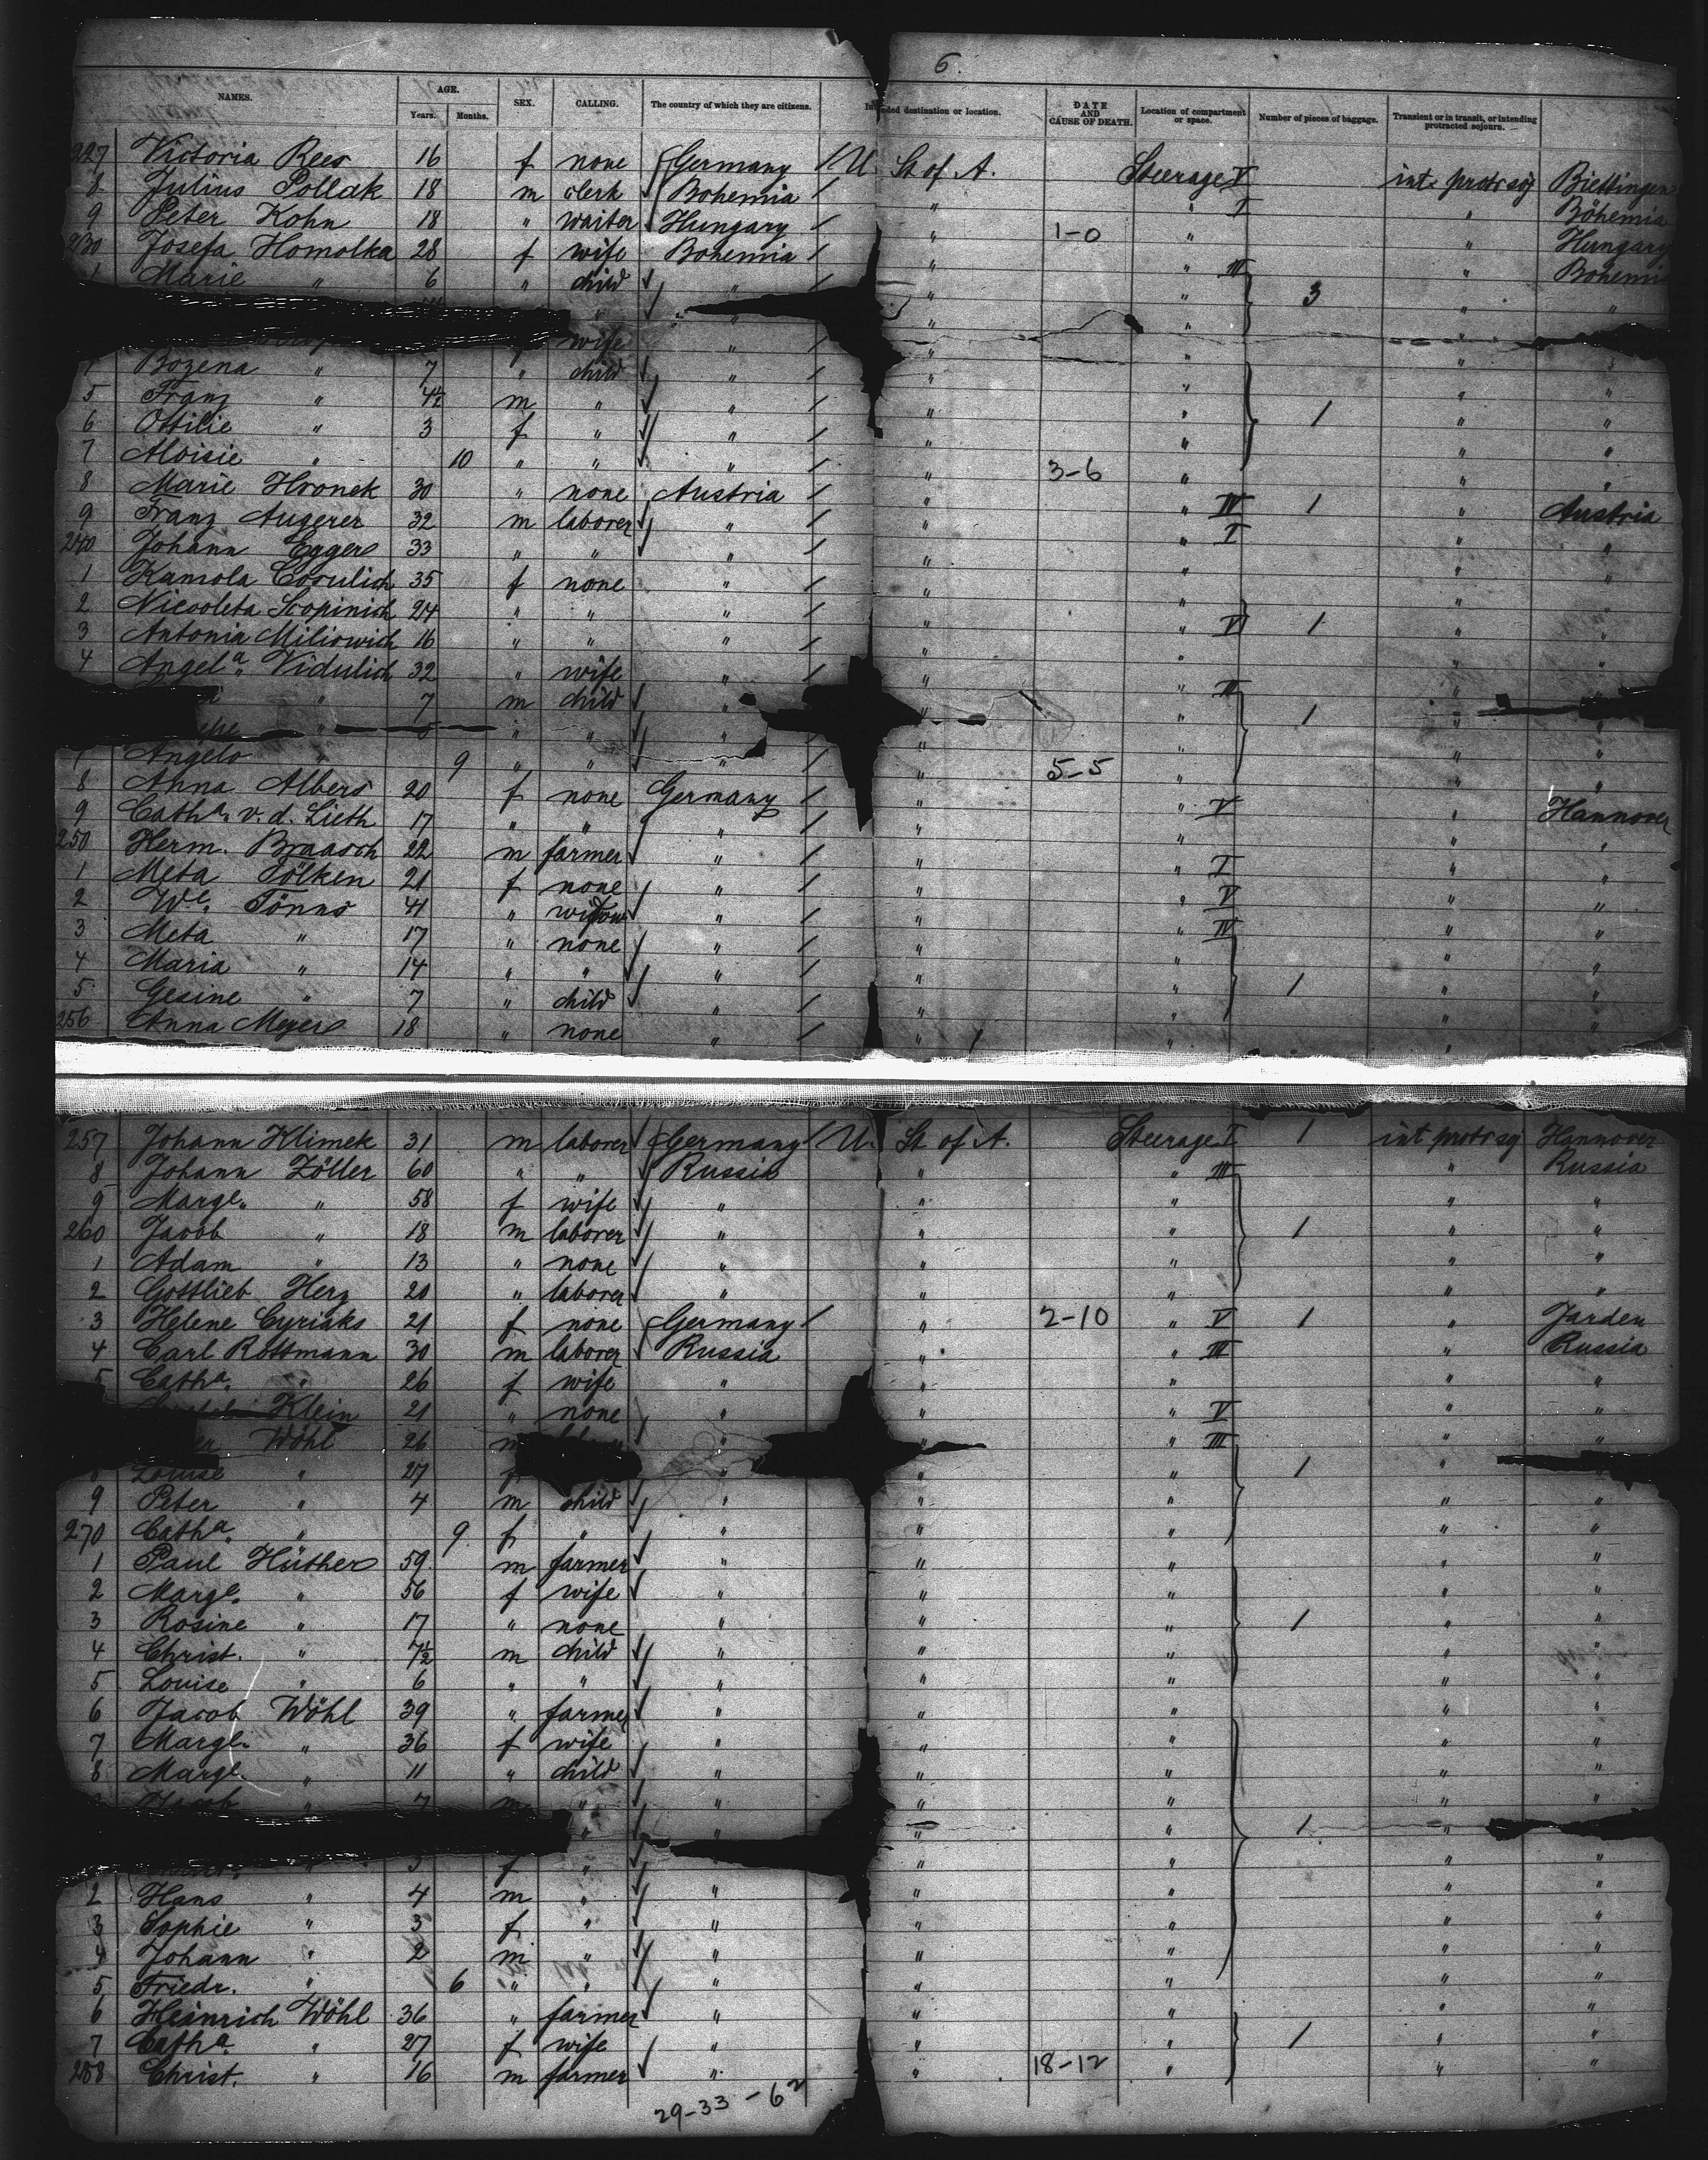 6.
NAMES. AGE. SEX. CALLING. The country of which they are citizens. Intended destination or location. DATE AND CAUSE OF DEATH. Location of compartment or space. Number of pieces of baggage. Transient or in transit, or intending protracted sojourn.
Years. Months.
227 Victoria Rees 16 f none Germany / U. St of A. Steerage V int. protr soj Biettingen
8 Julius Pollak 18 m clerk Bohemia / " " I " Böhemia
9 Peter Kohn 18 " waiter Hungary / " 1-0 " " Hungary
230 Josefa Homolka 28 f wife Bohemia / " " III " Bohemi
1 Marie " 6 " child " / " " 3 " "
" " / " " "
wife " / " " "
Bozena " 7 " child " / " " " "
5 Franz " 4½ m " " / " " 1 " "
6 Ottilie " 3 f " " / " " " "
7 Aloisie " 10 " " " / " 3-6 " " "
8 Marie Hronek 30 " none Austria / " " IV 1 " Austria
9 Franz Augerer 32 m laborer " / " " I " "
240 Johann Eggers 33 " " " / " " " "
1 Kamola Cosulich 35 f none " / " " " "
2 Nicoleta Scopinich 24 " " " / " " V 1 " "
3 Antonia Miliowich 16 " " " / " " " "
4 Angela Vidulich 32 " wife " / " " III " "
" 7 m child " " " 1 " "
" 5 " " " / " " " "
7 Angelo " 9 " " " / " 5-5 " " "
8 Anna Albers 20 f none Germany / " " V " Hannover
9 Catha. v. d. Lieth 17 " " " / " " " "
250 Herm. Braasch 22 m farmer " / " " I " "
1 Meta Tölken 21 f none " / " " V " "
2 We. Tönns 41 " widow " / " " IV " "
3 Meta " 17 " none " / " " " "
4 Maria " 14 " " " / " " " "
5 Gesine " 7 " child " / " " 1 " "
256 Anna Meyers 18 " none " / " " " "
257 Johann Klimek 31 m laborer Germany / U. St of A. Steerage I 1 int protr soj Hannover
8 Johann Zöller 60 " " Russia " " III " Russia
9 Marge. " 58 f wife " " " " "
260 Jacob " 18 m laborer " " " 1 " "
1 Adam " 13 " none " " " " "
2 Gottlieb Herz 20 " laborer " " " " "
3 Helene Cyriaks 21 f none Germany / " 2-10 " V 1 " Jarden
4 Carl Rottmann 30 m laborer Russia " " III " Russia
5 Catha. " 26 f wife " " " " "
Klein 21 " none " " " V " "
Wöhl 26 m " " " III " "
8 Louise " 27 f " " " 1 "
9 Peter " 4 m child " " " " "
270 Catha. " 9 f " " " " " "
1 Paul Hüther 59 m farmer " " " " "
2 Marge. " 56 f wife " " " " "
3 Rosine " 17 " none " " " 1 " "
4 Christ. " 7½ m child " " " " "
5 Louise " 6 " " " " " " "
6 Jacob Wöhl 39 " farmer " " " " "
7 Marge. " 36 f wife " " " " "
8 Marge. " 11 " child " " " " "
Jacob " 7 m " " " " " "
" " " 1 "
" 5 f " " " " "
2 Hans " 4 m " " " " " "
3 Sophie " 3 f " " " " " "
4 Johann " 2 m " " " " " "
5 Friedr. " 6 " " " " " " "
6 Heinrich Wöhl 36 " farmer " " " " "
7 Catha. " 27 f wife " " " 1 " "
288 Christ. " 16 m farmer " " 18-12 " " "
29-33-6²